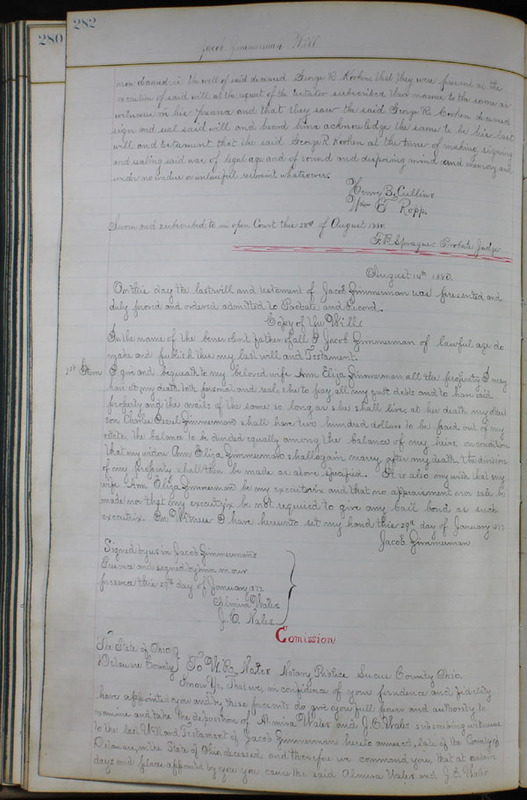 280
282
Jacob Zimmerman Will
execution of said will at the request of the testator subscribed their names to the same as
witnesses in his presence and that they saw the said George R. Koohen deceased
sign and seal said will and heard him acknowledge the same to be his last
will and testament that the said George R. Koohen at the time of making signing
and sealing said was of legal age and of sound and disposing mind and memory and
under no undue or unlawful restraint whatsoever.
Henry B. Cullins
Wm E Ropp
Sworn and subscribed to in open Court this 28th of August 1880.
F. B. Sprague Probate Judge
August 14th 1880.
On this day the last will and testament of Jacob Zimmerman was presented and
duly proved and ordered admitted to Probate and Record.
Copy of the Will
In the name of the benevolent father of all I Jacob Zimmerman of lawful age do
make and publish this my last will and Testament.
1st Item I give and bequeath to my beloved wife Ann Eliza Zimmerman all the property I may
have at my death both personal and real she to pay all my just debts and to have said
property and the avails of the same so long as she shall live, at her death my
son Charles Zimmerman shall have two hundred dollars to be paid out of my
estate, the balance to be divided equally among the balance of my heirs, on condition
that my widow Ann Eliza Zimmerman shall again marry after my death the division
of my Property shall then be made as above specified. It is also my wish that my
wife Ann Eliza Zimmerman be my executrix and that no appraisement nor sale be
made nor that my executrix be not required to give any bail bond as such
executrix In Witness I have hereunto set my hand this 29th day of January 1877
Jacob Zimmerman
Signed by us in Jacob Zimmerman's
Presence and signed by him in our
presence this 29th day of January 1877
Almira Wales
J. E. Wales
Comission
The State of Ohio
Delaware County } To W. R. Notary Public County Ohio.
Know Ye, That we, in confidence of your prudence and fidelity
have appointed you and by these presents do give you full power and authority to
examine and take the deposition of Almira Wales and J. E. Wales subscribing witnesses
to the last Will and Testament of Jacob Zimmerman hereto annexed, late of the County of
Delaware, in the State of Ohio deceased and therefore we command you, that at certain
days and places appointed by you you cause the said Almira Wales and J. E. Wales